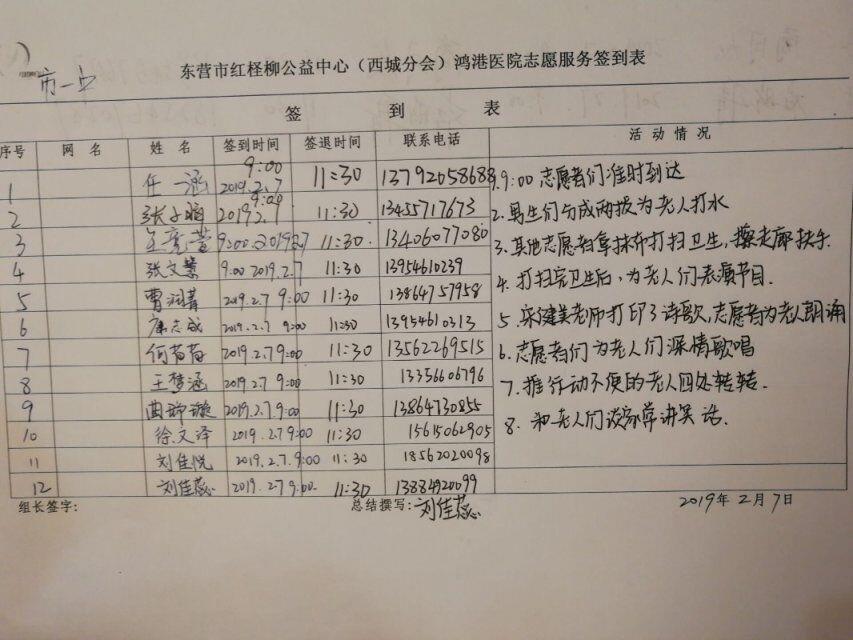 市一中
东营市红柽柳公益中心（西城分会）鸿港医院志愿服务签到表
签 到 表
序号 网 名 姓 名 签到时间 签退时间 联系电话 活 动 情 况
1 任一涵 9:00 2019.2.7 11:30 13792058688
2 张子涵 9:00 2019.2.7 11:30 13455717673
3 9:00.2019.2.7 11:30. 13406077080
4 张文慧 9:00 2019.2.7 11:30 13954610239
5 曹润菁 2019.2.7 9:00 11:30 13864757958
6 康志成 2019.2.7 9:00 11:30 13954610313
7 何苗苗 2019.2.7 9:00 11:30 13562269515
8 王梦涵 2019.2.7 9:00 11:30 13356606796
9 曲璇 2019.2.7 9:00 11:30 13864730855
10 徐文泽 2019.2.7 9:00 11:30 15615062905
11 刘佳悦 2019.2.7.9:00 11:30 18562020098
12 刘佳蕊 2019.2.7 9:00. 11:30 13884920099
1.9:00志愿者们准时到达
2.男生们分成两拨为老人打水
3.其他志愿者拿抹布打扫卫生，擦走廊扶手.
4.打扫完卫生后，为老人们表演节目.
5.宋健美老师打印了诗歌，志愿者为老人朗诵
6.志愿者们为老人们深情歌唱
7.推行动不便的老人四处转转.
8.和老人们谈家常讲笑话.
组长签字: 总结撰写:刘佳蕊 2019年2月7日